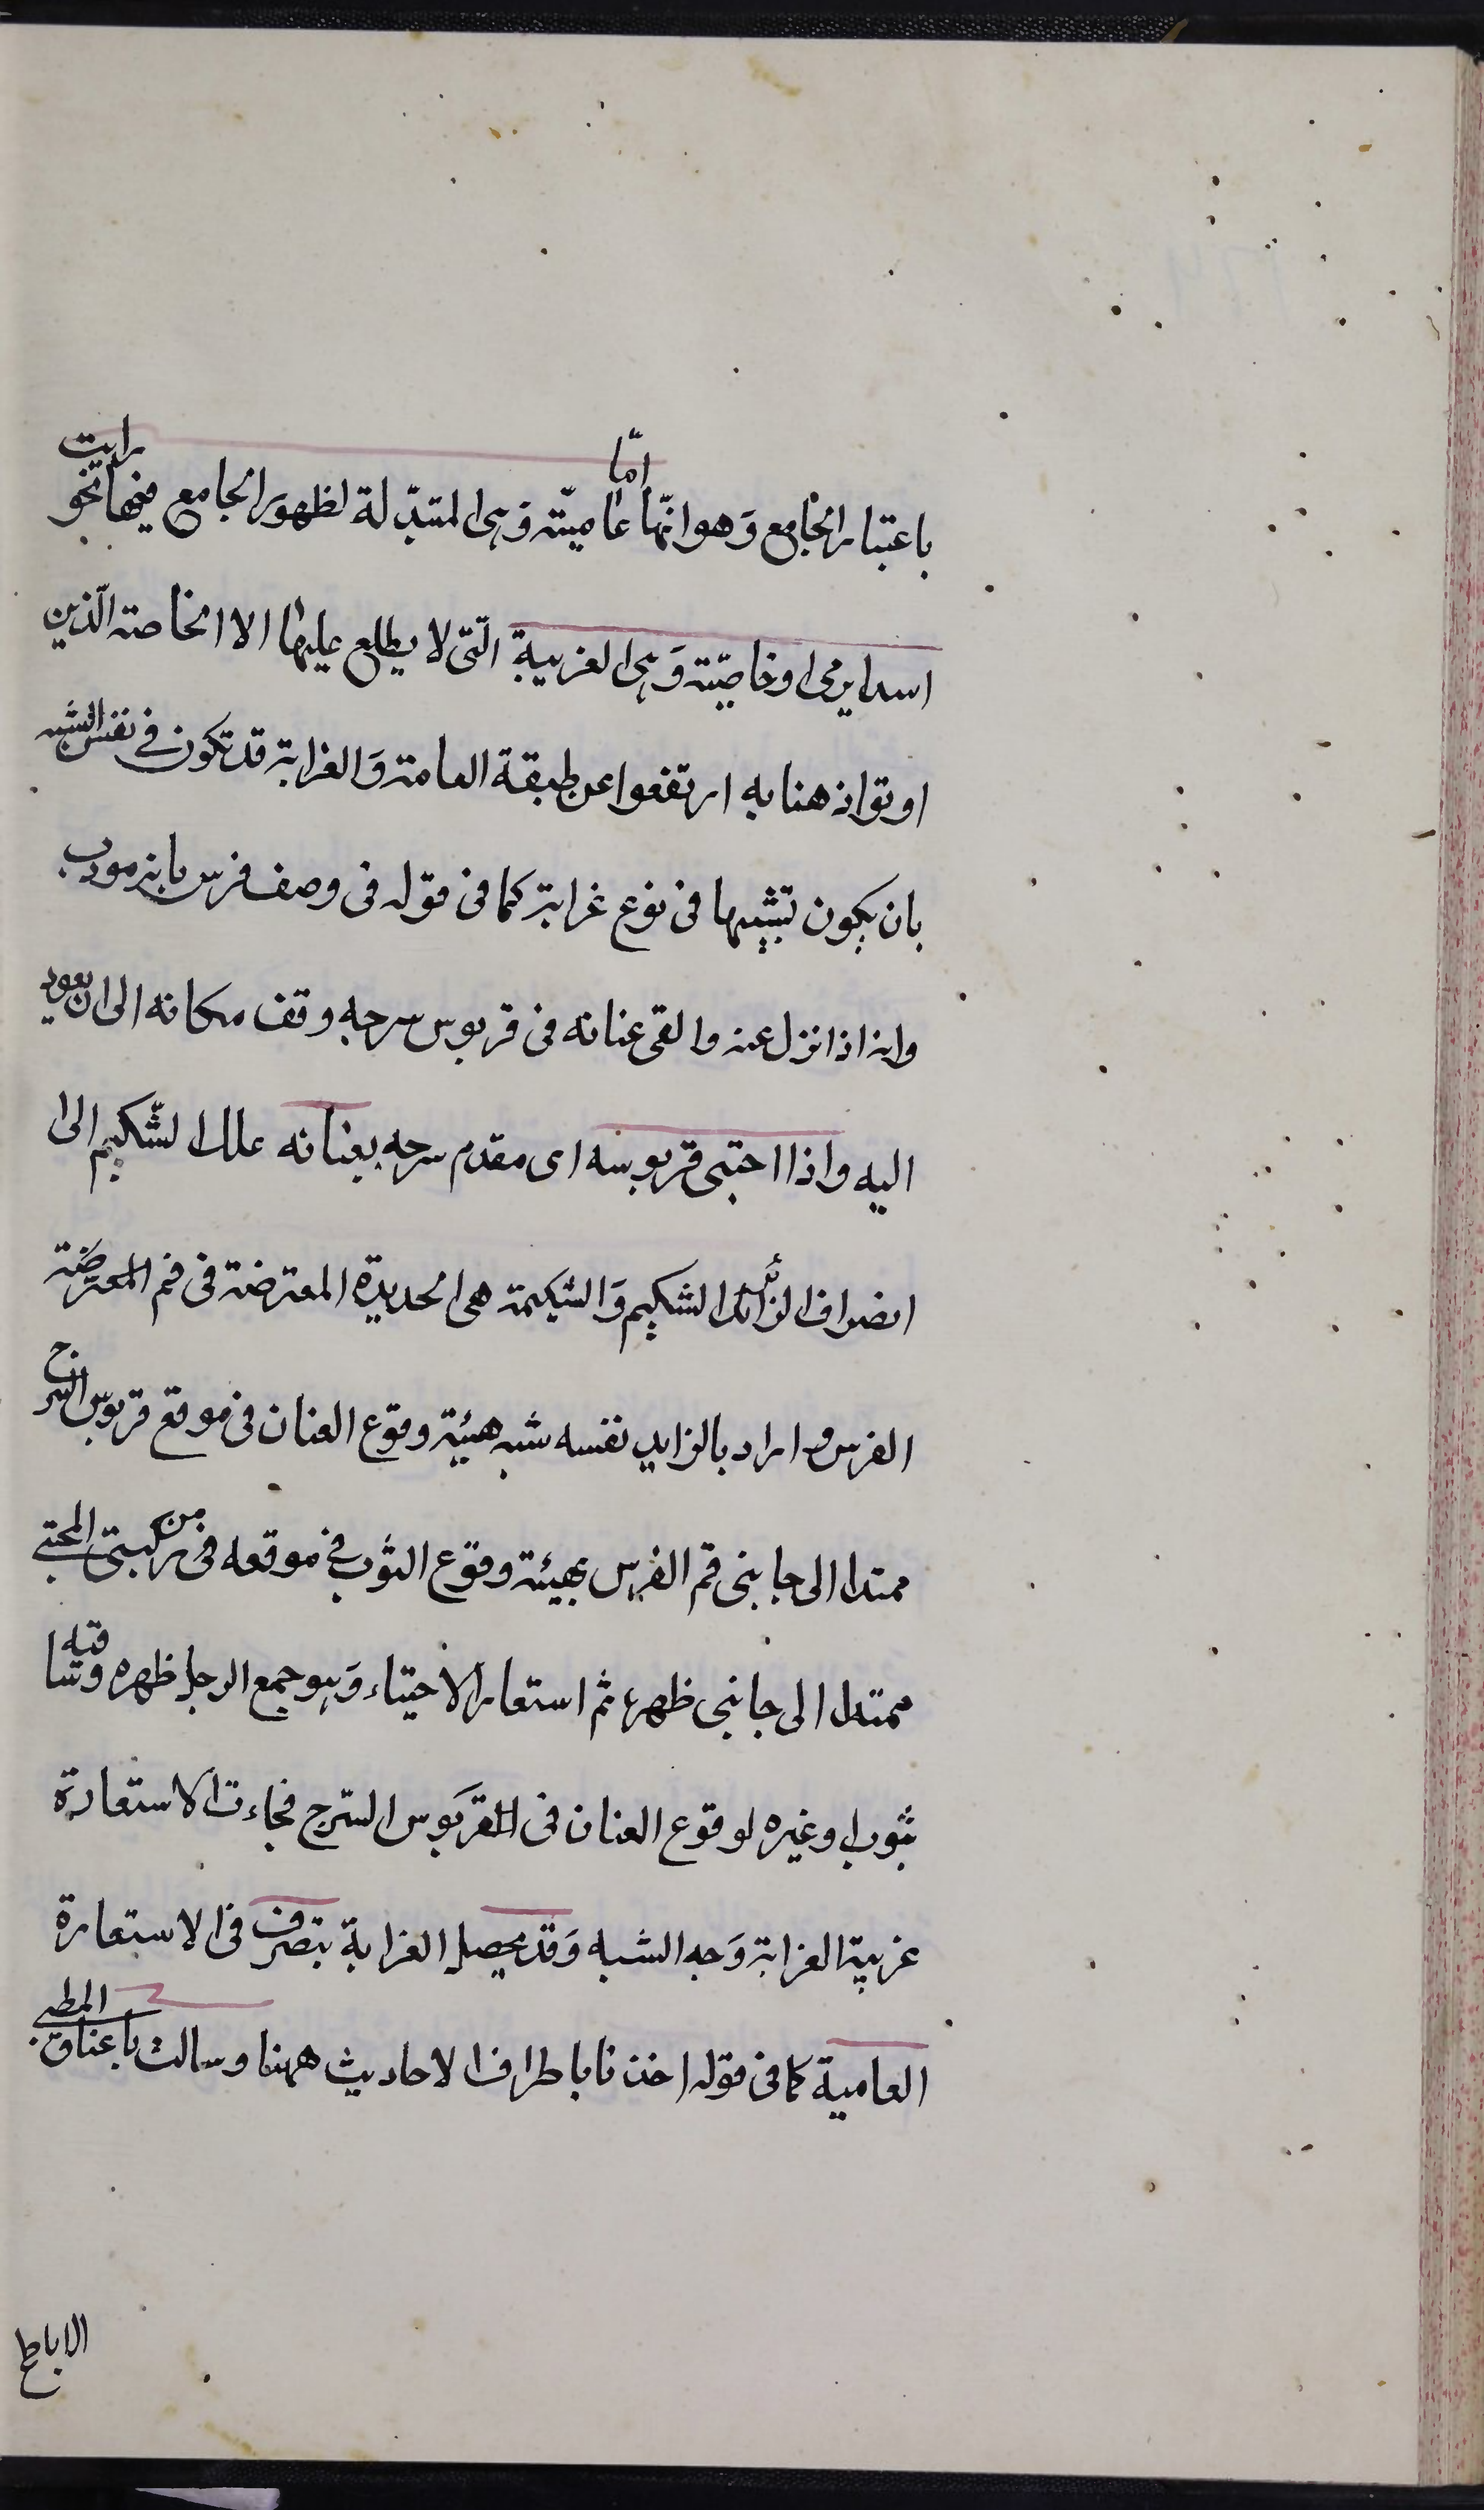 باعتبار الجامع وهو انّها امّا عاميّته وهى المتبدّلة لظهور الجامع فيها نحو رايت
اسدا يرمى او خاصّيته وهى الغريبة التّى لا يطلع عليها الا الخاصته الّذين
اوتوا ذهنا به ارتفعوا عن طبقة العامته والغرابته قد تكون فے نفس الشبه
بان يكون تشبيها فى نوع غرابته كما فى قوله فى وصف فرس بانه مودب
وانه اذا نزل عنه والقى عنانه فى قربوس سرجه وقف مكانه الى ان يعود
اليه واذا احتبى قربوسه اى مقدم سرجه بعنانه علك الشّكيم الى
انصراف الزائد الشكيم والشكيمته هى الحديدة المعترضته فى فم المعترضته
الفرس واراد بالزايد نفسه شبه هيئية وقوع العنان فى موقع قربوس السرج
ممتدا الى جانبى فم الفرس بهيئته وقوع الثوب فے موقعه فى من ركبتى المحتبے
ممتدا الى جانبى ظهره ثم استعار الاحتياء وهو جمع الرجل ظهره وساقيه
بثوب او غيره لوقوع العنان فى القربوس السّرج فجاءت الاستعارة
غريبة الغرابته وجه الشبه وقد يحصل الغرابة بتصرف فى الاستعارة
العامية كما فى قوله اخذنا باطراف الاحاديث ههنا وسالت باعناق المطے
الاباطح